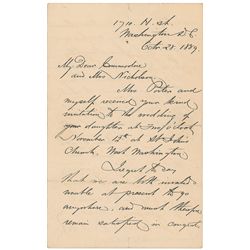 1710 H St.
Washington D.C.
Oct. 28. 1889.
My Dear Commodore
and Mrs Nicholson.
Mrs Porter and
myself received your kind
invitation to the wedding of
your daughter at
November 13th at St John's
Church, North Washington
I regret to say
that we are both invalids
unable at present to go
anywhere, and must therefore
remain satisfied in